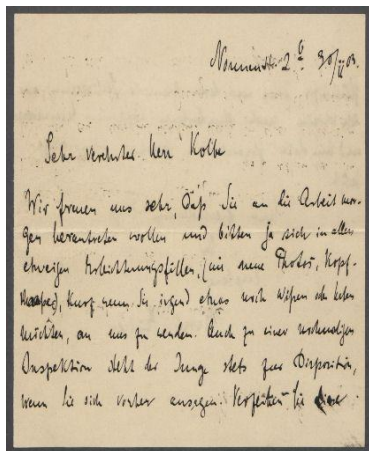 Sehr verehrter Herr Kolbe
Wir freuen uns sehr, daß Sie an die Arbeit mor-
gen herantreten wollen und bitten Sie sich in allen
etwaigen (um neue Photos, Kopf-
kurz wenn Sie irgend etwas noch wissen oder haben
möchten, an uns zu wenden. Auch zu einer nochmaligen
Inspektion steht der Junge stets zur Disposition,
wenn Sie sich vorher ansagen. Verzeihen Sie diese